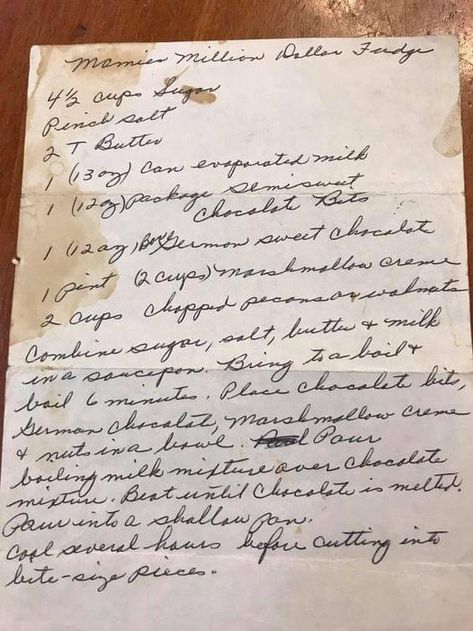 Mamies Million Dollar Fudge
4 1/2 cups Sugar
Pinch salt
2 T Butter
1 (13 oz) Can evaporated milk
1 (12 oz) Package Semisweet
Chocolate Bits
1 (12 oz) Bar German sweet Chocolate
1 pint (2 cups) Marshmallow creme
2 cups chopped pecans or walnuts
Combine sugar, salt, butter & milk
in a saucepan. Bring to a boil &
boil 6 minutes. Place chocolate bits,
German Chocolate, Marshmallow Creme
& nuts in a bowl. Pour
boiling milk mixture over chocolate
mixture. Beat until Chocolate is melted.
Pour into a shallow pan.
Cool several hours before cutting into
bite-size pieces.